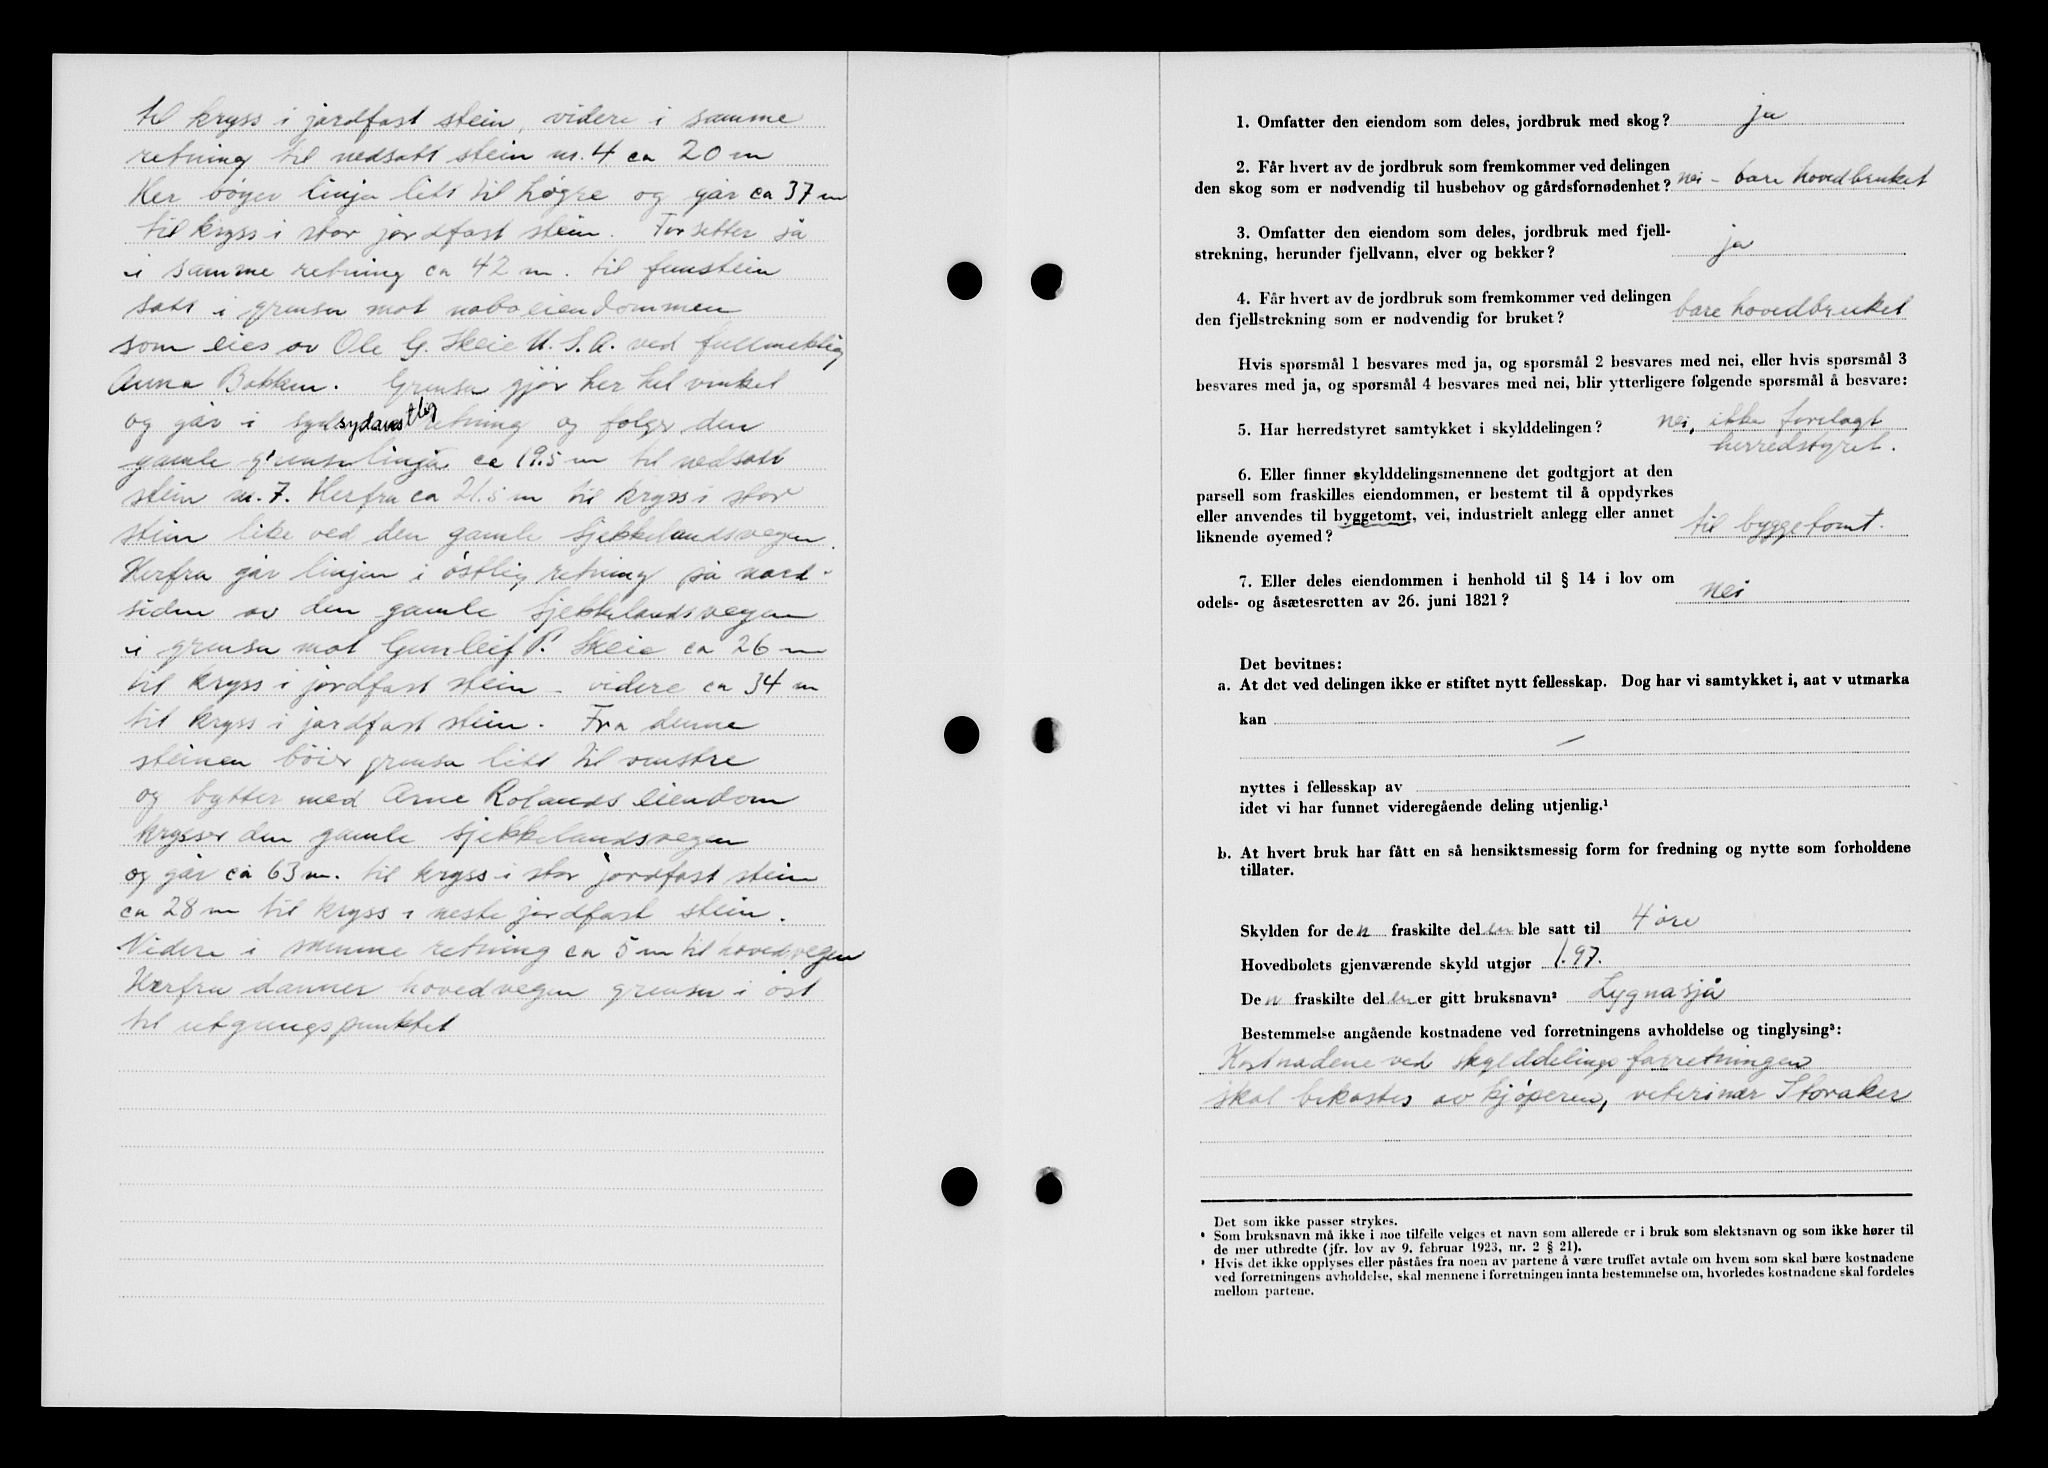 til kryss i jordfast stein, videre i samme
retning til nedsatt stein nr. 4 ca 20 m
Her bøyer linja litt til høgre og går ca 37 m
til kryss i stor jordfast stein. Forsetter så
i samme retning ca 42 m. til
satt i grensa mot naboeiendommen
som eies av Ole G. Skeie U.S.A. ved fullmektig
Anna Bakken. Grensa gjør her hel vinkel
og går i sydsydaustlig retning og følger den
gamle grenselinja ca 19.5 m til nedsatt
stein nr. 7. Herfra ca 21.5 m til kryss i stor
stein like ved den gamle Sjekkelandsvegen.
Herfra går linjen i østlig retning på nord-
siden av den gamle Sjekkelandsvegen
i grensa mot Gunleif P. Skeie ca 26 m
til kryss i jordfast stein - videre ca 34 m
til kryss i jordfast stein. Fra denne
steinen bøier grensa litt til venstre
og bytter med Arne Rolands eiendom
krysser den gamle Sjekkelandsvegen
og går ca 63 m. til kryss i stor jordfast stein
ca 28 m til kryss i neste jordfast stein.
Videre i samme retning ca 5 m til hovedvegen
Herfra danner hovedvegen grensa i øst
til utgangspunktet
1. Omfatter den eiendom som deles, jordbruk med skog? ja
2. Får hvert av de jordbruk som fremkommer ved delingen
den skog som er nødvendig til husbehov og gårdsfornødenhet? nei - bare hovedbruket
3. Omfatter den eiendom som deles, jordbruk med fjell-
strekning, herunder fjellvann, elver og bekker? ja
4. Får hvert av de jordbruk som fremkommer ved delingen
den fjellstrekning som er nødvendig for bruket? bare hovedbruket
Hvis spørsmål 1 besvares med ja, og spørsmål 2 besvares med nei, eller hvis spørsmål 3
besvares med ja, og spørsmål 4 besvares med nei, blir ytterligere følgende spørsmål å besvare:
5. Har herredstyret samtykket i skylddelingen? nei, ikke forelagt
herredstyret.
6. Eller finner skylddelingsmennene det godtgjort at den
parsell som fraskilles eiendommen, er bestemt til å oppdyrkes
eller anvendes til byggetomt, vei, industrielt anlegg eller annet
liknende øyemed? til byggetomt.
7. Eller deles eiendommen i henhold til § 14 i lov om
odels- og åsætesretten av 26. juni 1821? nei
Det bevitnes:
a. At det ved delingen ikke er stiftet nytt fellesskap. Dog har vi samtykket i, aat v utmarka
kan
—
nyttes i fellesskap av
idet vi har funnet videregående deling utjenlig.¹
b. At hvert bruk har fått en så hensiktsmessig form for fredning og nytte som forholdene
tillater.
Skylden for den fraskilte delen ble satt til 4 øre
Hovedbølets gjenværende skyld utgjør 1.97.
Den fraskilte delen er gitt bruksnavn² Lygnasjå
Bestemmelse angående kostnadene ved forretningens avholdelse og tinglysing³:
Kostnadene ved skylddelings forretningen
skal bekostes av kjøperen, veterinær Storaker
Det som ikke passer strykes.
² Som bruksnavn må ikke i noe tilfelle velges et navn som allerede er i bruk som slektsnavn og som ikke hører til
de mer utbredte (jfr. lov av 9. februar 1923, nr. 2 § 21).
³ Hvis det ikke opplyses eller påståes fra noen av partene å være truffet avtale om hvem som skal bære kostnadene
ved forretningens avholdelse, skal mennene i forretningen innta bestemmelse om, hvorledes kostnadene skal fordeles
mellom partene.